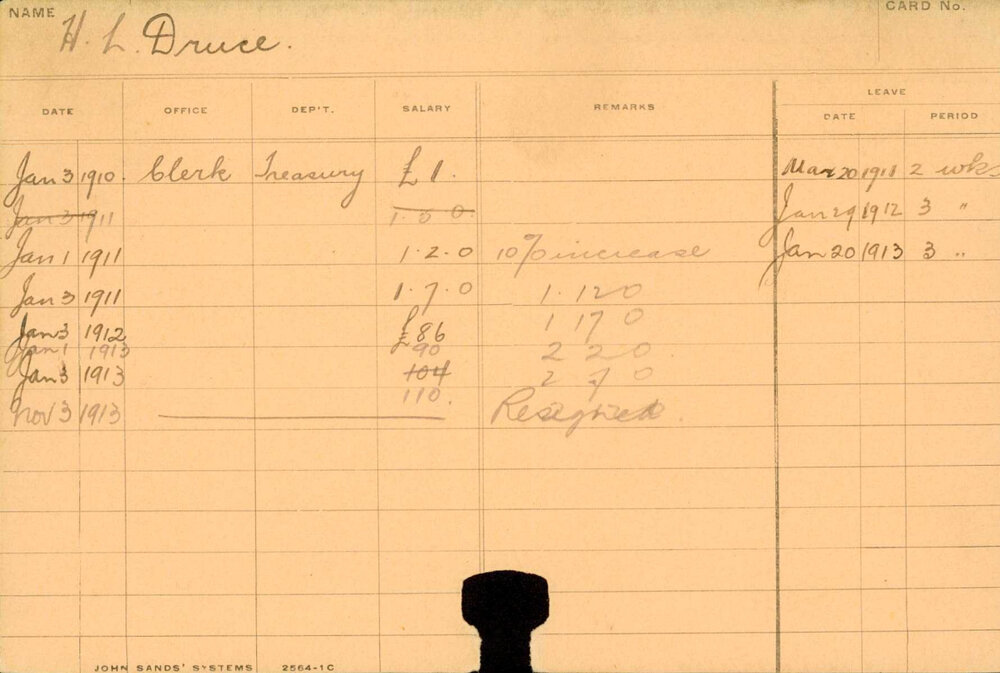 NAME H. L. Druce. CARD No.
DATE OFFICE DEP'T. SALARY REMARKS LEAVE
DATE PERIOD
Jan 3 1910. Clerk Treasury £1. Mar 20 1911 2 wks
Jan 3 1911 1. 0 0 Jan 29 1912 3 "
Jan 1 1911 1. 2. 0 10% increase Jan 20 1913 3 "
Jan 3 1911 1. 7. 0 1. 12 0
Jan 3 1912 £86 1 17 0
Jan 1 1913 90 2 2 0
Jan 3 1913 104 2 7 0
110.
Nov 3 1913 Resigned.
JOHN SANDS' SYSTEMS 2564-1C